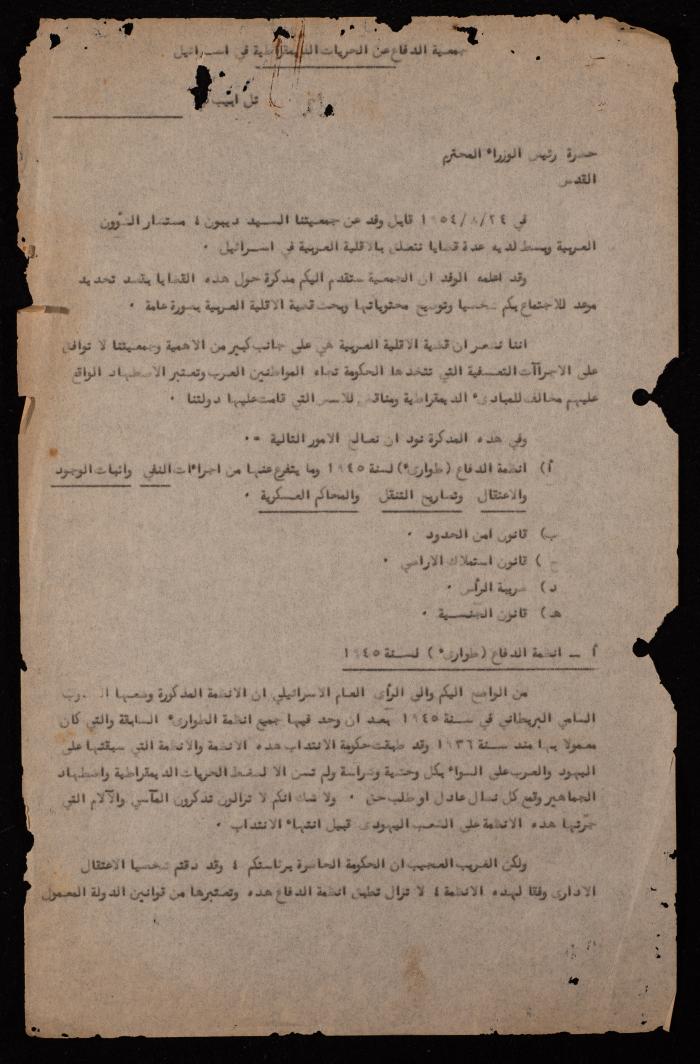 جمعية الدفاع عن الحريات الديمقراطية في اسرائيل
تل ابيب
حضرة رئيس الوزراء المحترم
القدس
في ١٩٥٤/٨/٢٤ قابل وفد عن جمعيتنا السيد ديبون ٤ مستشار الشؤون
العربية وبسط لديه عدة قضايا تتعلق بالاقلية العربية في اسرائيل ٠
وقد اعلمه الوفد ان الجمعية ستقدم اليكم مذكرة حول هذه القضايا بقصد تحديد
موعد للاجتماع بكم شخصيا وتوضيح محتوياتها وبحث قضية الاقلية العربية بصورة عامة ٠
اننا نشعر ان قضية الاقلية العربية هي على جانب كبير من الاهمية وجمعيتنا لا توافق
على الاجراآت التعسفية التي تتخذها الحكومة تجاه المواطنين العرب وتعتبر الاضطهاد الواقع
عليهم مخالف للمبادىء الديمقراطية ومناقض للاسس التي قامت عليها دولتنا ٠
وفي هذه المذكرة نود ان نعالج الامور التالية -٠
أ) انظمة الدفاع (طوارىء) لسنة ١٩٤٥ وما يتفرع عنها من اجراءات النفي واثبات الوجود
والاعتقال وتصاريح التنقل والمحاكم العسكرية ٠
ب) قانون امن الحدود ٠
ج) قانون استملاك الاراضي ٠
د) ضريبة الرأس ٠
هـ) قانون الجنسية ٠
أ ـ انظمة الدفاع (طوارىء) لسنة ١٩٤٥
من الواضح اليكم والى الرأى العام الاسرائيلي ان الانظمة المذكورة وضعها
السامي البريطاني في سنة ١٩٤٥ بعد ان وحد فيها جميع انظمة الطوارىء السابقة والتي كان
معمولا بها منذ سنة ١٩٣٦ وقد طبقت حكومة الانتداب هذه الانظمة والانظمة التي سبقتها على
اليهود والعرب على السواء بكل وحشية وشراسة ولم تسن الا لضغط الحريات الديمقراطية واضطهاد
الجماهير وقمع كل نضال عادل او طلب حق ٠ ولا شك انكم لا تزالون تذكرون المآسي والآلام التي
جرّتها هذه الانظمة على الشعب اليهودى قبيل انتهاء الانتداب ٠
ولكن الغريب العجيب ان الحكومة الحاضرة برئاستكم ٤ وقد ذقتم شخصيا الاعتقال
الادارى وفقا لهذه الانظمة ٤ لا تزال تطبق انظمة الدفاع هذه وتعتبرها من قوانين الدولة المعمول